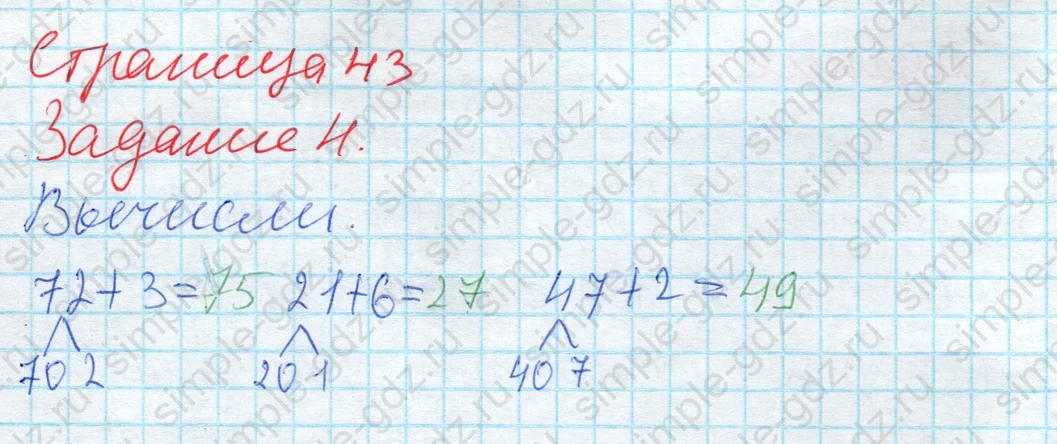 Страница 43
Задание 4.
Вычисли.
72+3=75 21+6=27 47+2=49
70 2 20 1 40 7
simple-gdz.ru